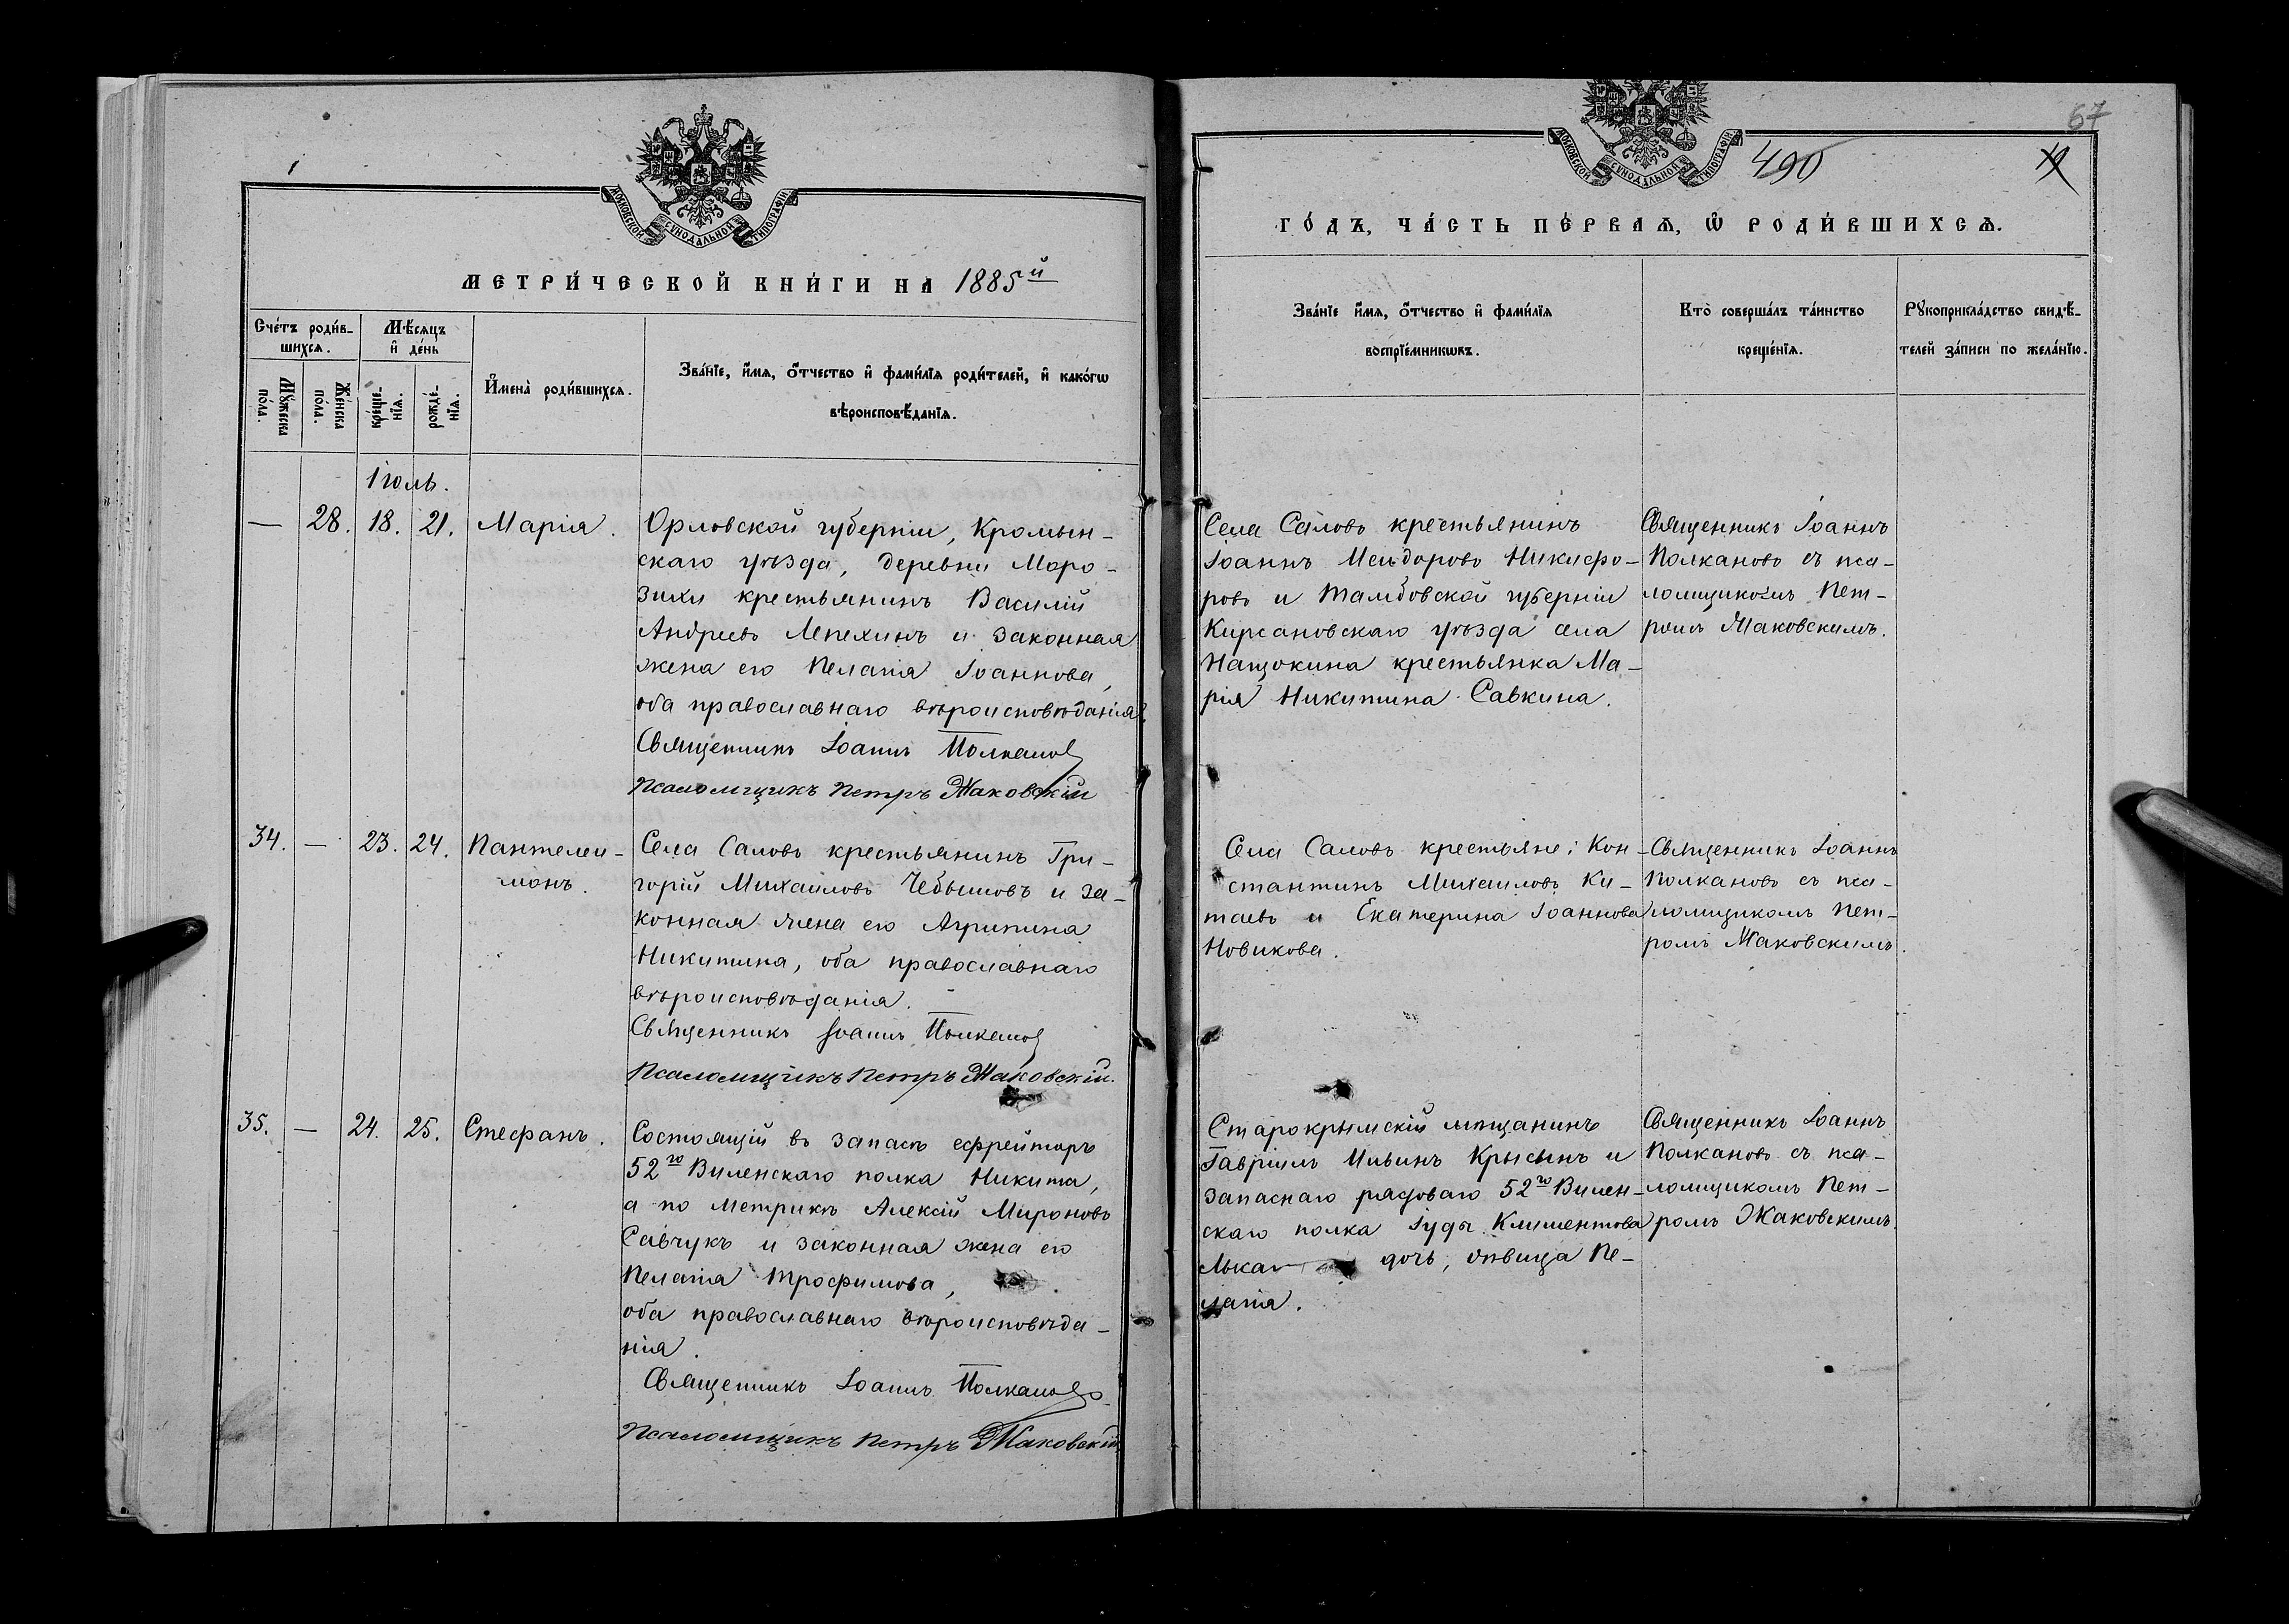 МОСКОВСКОЙ СѴНОДАЛЬНОЙ ТИПОГРАФІИ
МЕТРИ́ЧЕСКОЙ КНИ́ГИ НА 1885й
Сче́тъ роди́в-
шихся.
Мѣ́сяцъ
и҆ де́нь
Мꙋ́жеска
по́ла.
Же́нска
по́ла.
креще́-
нїѧ.
рожде́-
нїѧ.
И҆мена̀ роди́вшихсѧ.
Зва́нїе, и҆́мѧ, ѻ҆́тчество и҆ фами́лїѧ роди́телей, и҆ како́гѡ
вѣроисповѣ́данїѧ.
Іюль.
— 28. 18. 21. Марія.
Орловской губерніи, Кромын-
скаго уѣзда, деревни Моро-
зихи крестьянинъ Василій
Андреевъ Лепехинъ и законная
жена его Пелагія Іоаннова,
оба православнаго вѣроисповѣданія.
Священникъ Іоаннъ Полкановъ
Псаломщикъ Петръ Жаковскій
34. — 23. 24. Пантелеи-
монъ.
Села Саловъ крестьянинъ Гри-
горій Михаиловъ Чебышовъ и за-
конная жена его Агрипина
Никитина, оба православнаго
вѣроисповѣданія.
Священникъ Іоаннъ Полкановъ
Псаломщикъ Петръ Жаковскій.
35. — 24. 25. Стефанъ.
Состоящій въ запасѣ ефрейторъ
52го Виленскаго полка Никита,
а по метрикѣ Алексій Мироновъ
Савчукъ и законная жена его
Пелагія Трофимова,
оба православнаго вѣроисповѣда-
нія.
Священникъ Іоаннъ Полкановъ
Псаломщикъ Петръ Жаковскій
67
МОСКОВСКОЙ СѴНОДАЛЬНОЙ ТИПОГРАФІИ
490
ГО́ДЪ, ЧА́СТЬ ПЕ́РВАѦ, Ѡ҆ РОДИ́ВШИХСѦ.
Зва́нїе и҆́мѧ, ѻ҆́тчество и҆ фами́лїѧ
воспрїе́мникѡвъ.
Кто̀ соверша́лъ та́инство
креще́нїѧ.
Рꙋкоприкла́дство свидѣ́-
телей за́писи по жела́нїю.
Села Саловъ крестьянинъ
Іоаннъ Исидоровъ Никифо-
ровъ и Тамбовской губерніи
Кирсановскаго уѣзда села
Нащокина крестьянка Ма-
рія Никитина Савкина.
Священникъ Іоаннъ
Полкановъ съ пса-
ломщикомъ Пет-
ромъ Жаковскимъ.
Села Саловъ крестьяне: Кон-
стантинъ Михаиловъ Ки-
таевъ и Екатерина Іоаннова
Новикова.
Священникъ Іоаннъ
Полкановъ съ пса-
ломщикомъ Пет-
ромъ Жаковскимъ.
Старокрымскій мѣщанинъ
Гавріилъ Ильинъ Крысинъ и
запаснаго рядоваго 52го Вилен-
скаго полка Іуды Климентова
дочь, дѣвица Пе-
лагія.
Священникъ Іоаннъ
Полкановъ съ пса-
ломщикомъ Пет-
ромъ Жаковскимъ.